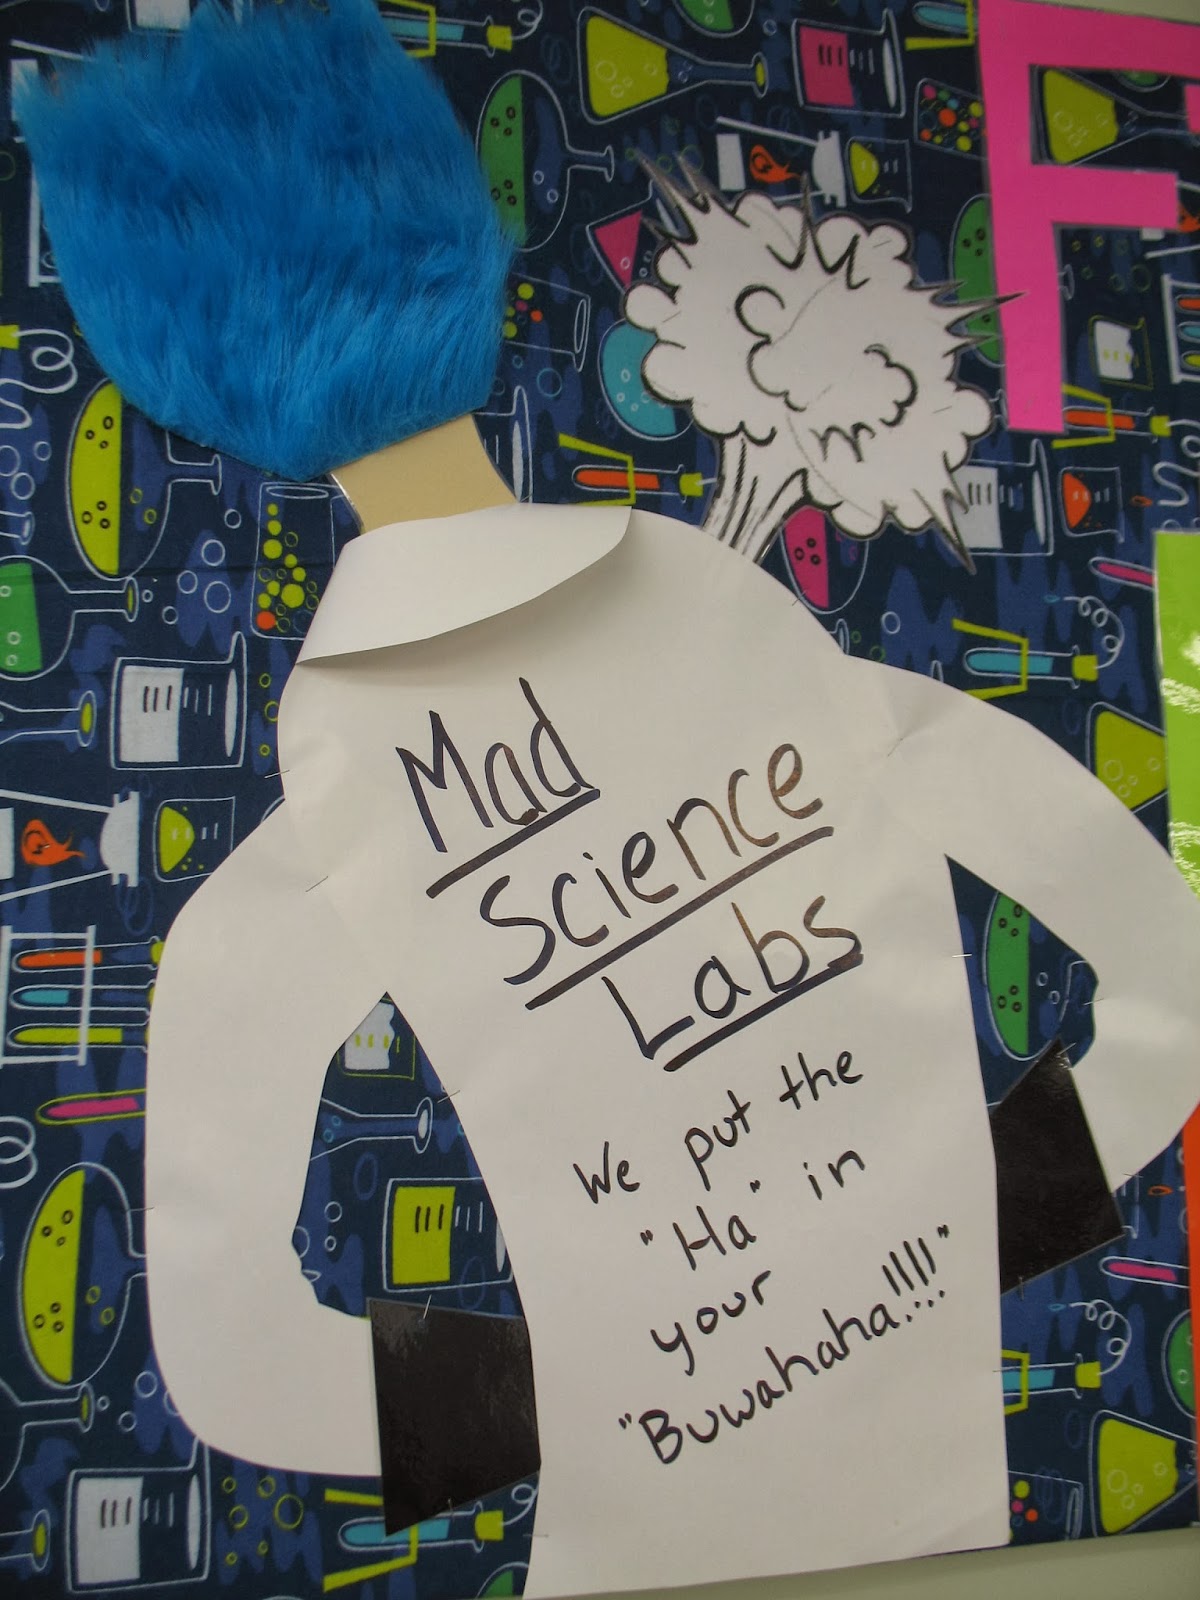 F
Mad
Science
Labs
We put the
"Ha" in
your
"Buwahaha!!!!"